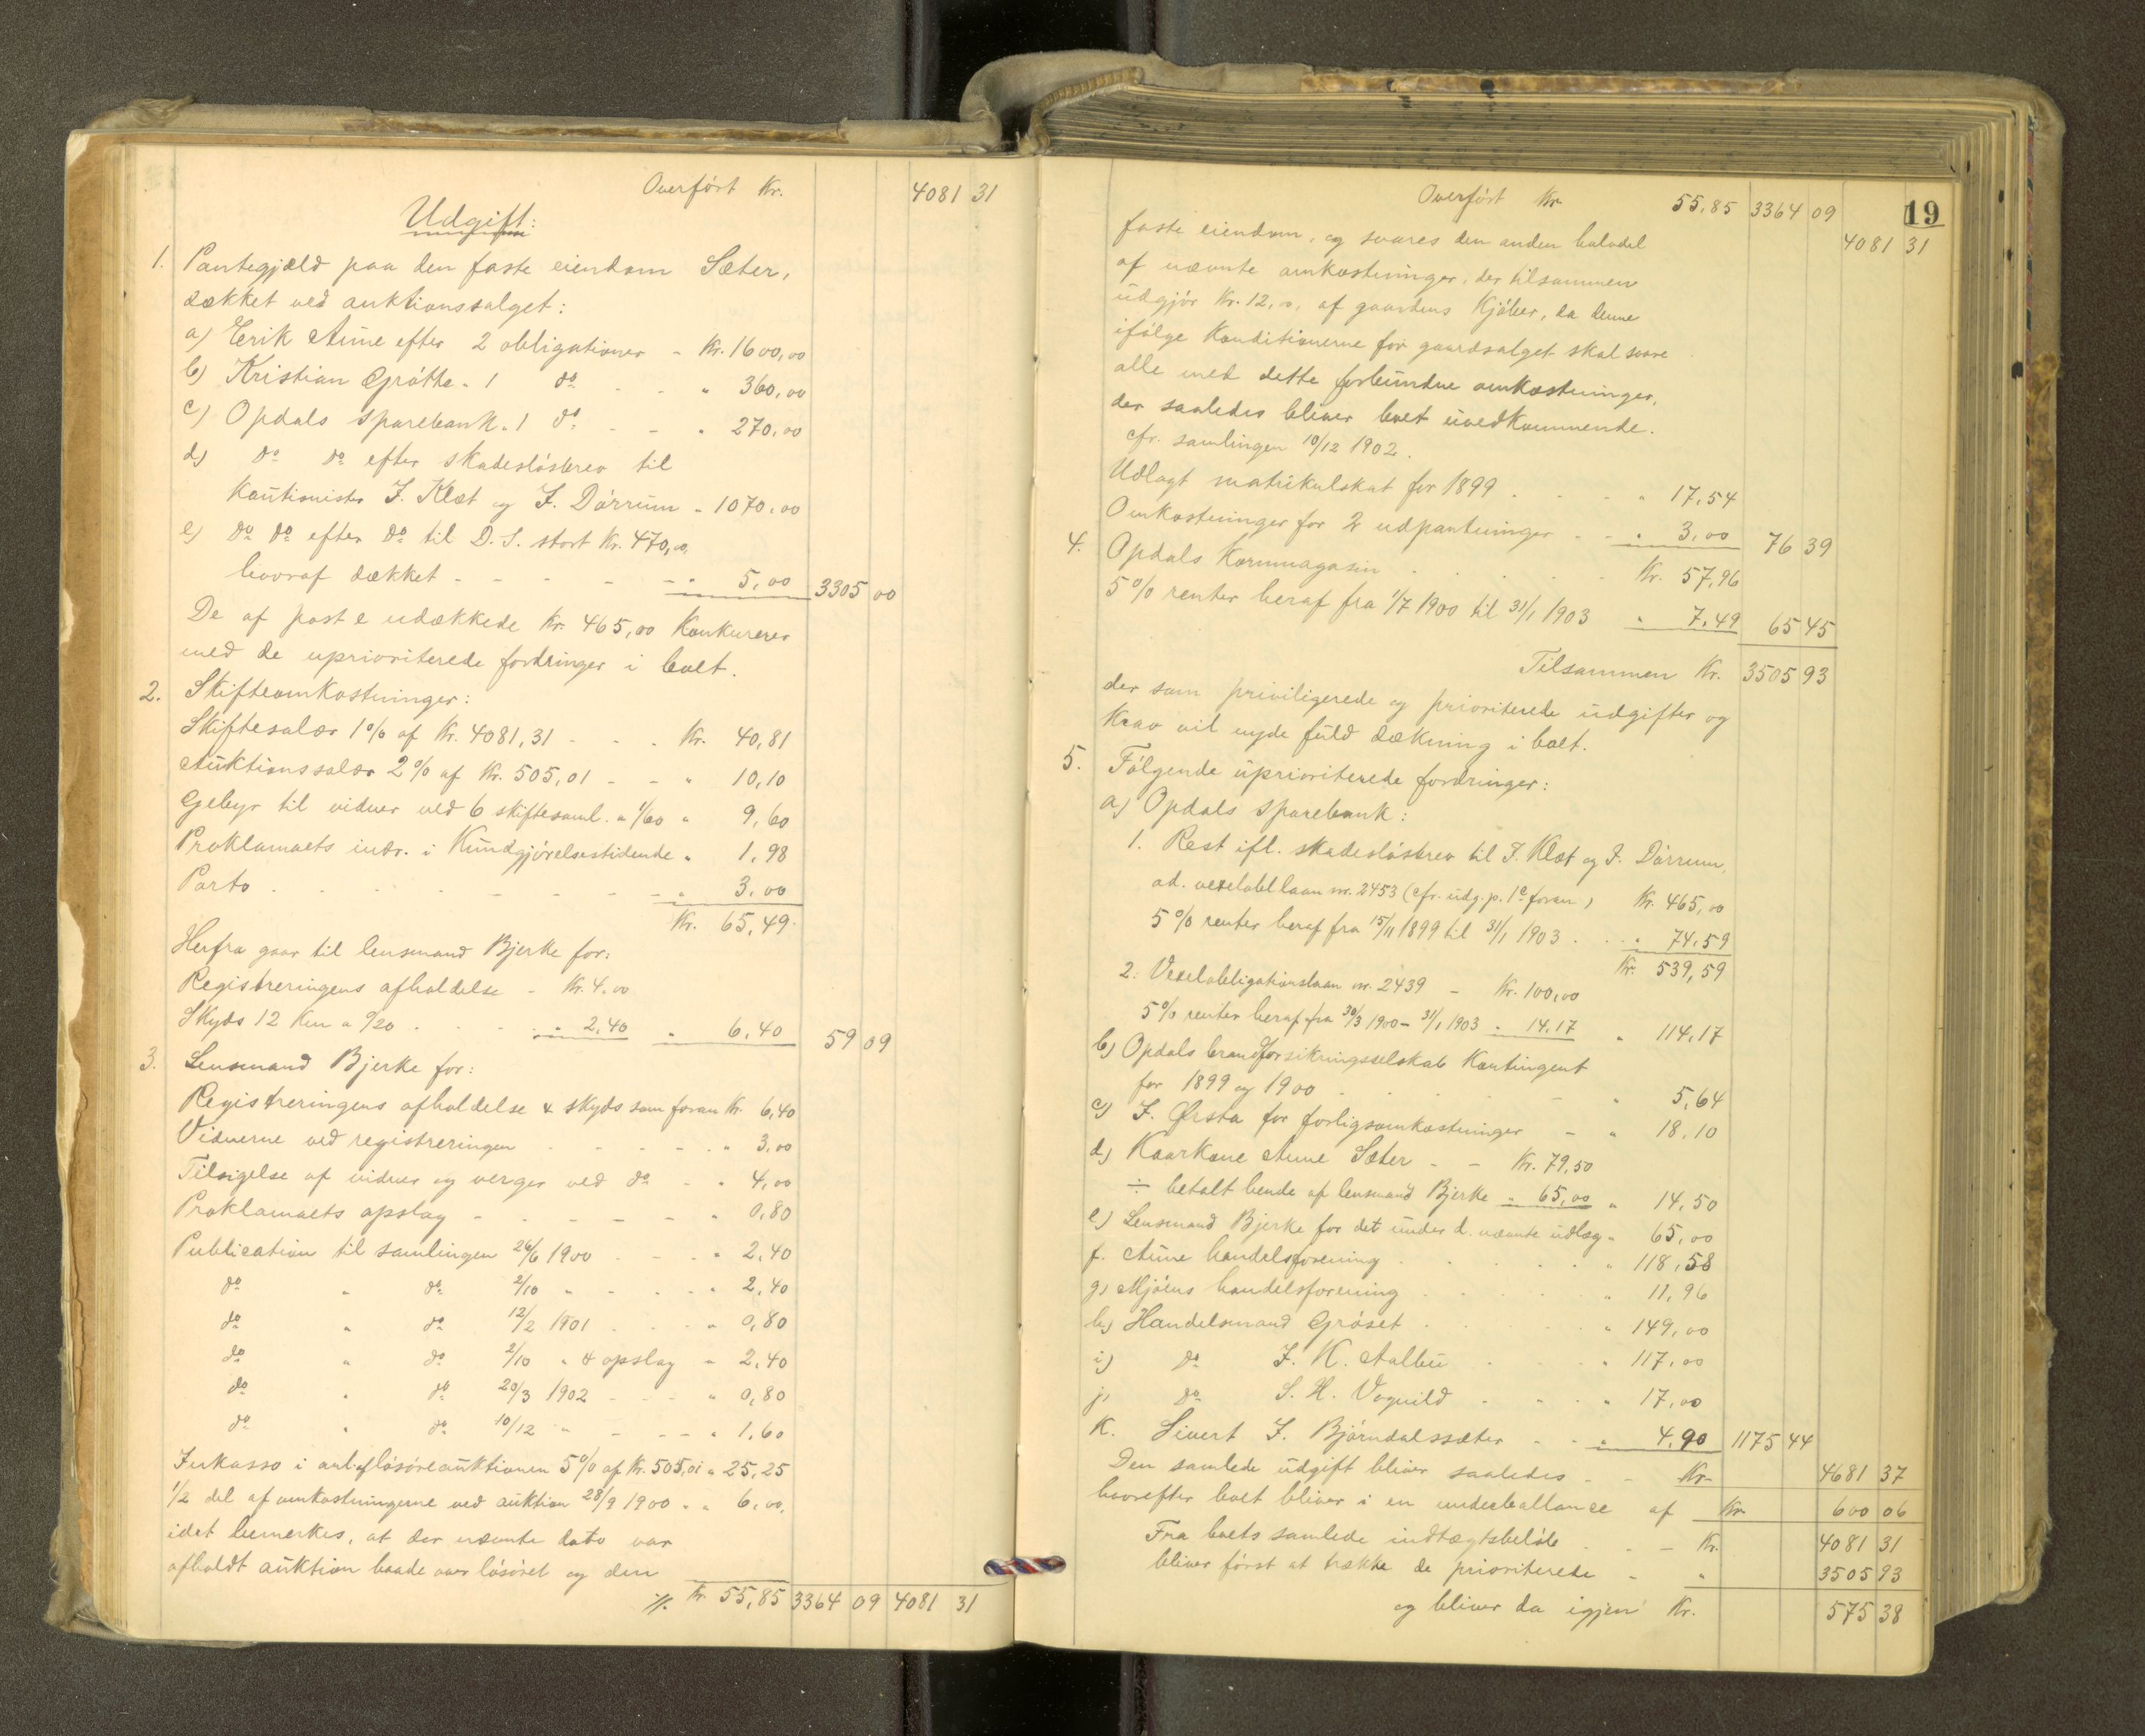 Overført Kr. 4081 31
Udgift:
1. Pantegjæld paa den faste eiendom Sæter,
dækket ved auktionssalget:
a) Erik Aune efter 2 obligationer - Kr. 1600,00
b) Kristian Grøtte " 1 do - - " 360,00
c) Opdals sparebank " 1 do - - " 270,00
d) do do efter skadesløsbrev til
Kautionister J. Klæt og J. Dørrum " 1070,00
e) do do efter do til D. S. stort Kr. 470,00,
hvoraf dækket - - - - - " 5,00 3305 00
De af post e udækkede Kr. 465,00 Konkurerer
med de uprioriterede fordringer i boet.
2. Skifteomkostninger:
Skiftesalær 1% af Kr. 4081,31 - - - Kr. 40,81
Auktionssalær 2% af Kr. 505,01 - - " 10,10
Gebyr til vidner ved 6 skiftesaml. a 1/60 " 9,60
Proklamaets indr. i Kundgjørelsestidende " 1,98
Porto - - - - - - - - " 3,00
Kr. 65,49
Herfra gaar til lensmand Bjerke for:
Registreringens afholdelse - Kr. 4,00
Skyds 12 Km a 0/20 - - - " 2,40 " 6,40 59 09
3. Lensmand Bjerke for:
Registreringens afholdelse & skyds som foran Kr. 6,40
Vidnerne ved registreringen - - - - - " 3,00
Tilsigelse af vidner og verger ved do - - " 4,00
Proklamaets opslag - - - - - - " 0,80
Publication til samlingen 26/6 1900 - - - " 2,40
do " do 2/10 " - - - " 2,40
do " do 12/2 1901 - - - " 0,80
do " do 2/10 " & opslag " 2,40
do " do 20/3 1902 - - - " 0,80
do " do 10/12 " - - - " 1,60
Inkasso i anl. af løsøreauktionen 5% af Kr. 505,01 " 25,25
1/2 del af omkostningerne ved auktion 28/9 1900 " " 6,00,
idet bemerkes, at der nævnte dato var
afholdt auktion baade over løsøret og den
%. Kr. 55,85 3364 09 4081 31
19
Overført Kr 55,85 3364 09
4081 31
faste eiendom, og svares den anden halvdel
af nævnte omkostninger, der tilsammen
udgjør Kr. 12,00, af gaardens Kjøber, da denne
ifølge Konditionerne for gaardsalget skal svare
alle med dette forbundne omkostninger,
der saaledes bliver boet uvedkommende.
cfr. samlingen 10/12 1902.
Udlagt matrikulskat for 1899 - - - - " 17,54
Omkostninger for 2 udpantninger - - " 3,00 76 39
4. Opdals Kornmagasin - - - - - Kr. 57,96
5% renter heraf fra 1/7 1900 til 31/1 1903 " 7,49 65 45
Tilsammen Kr. 3505 93
der som priviligerede og prioriterede udgifter og
Krav vil nyde fuld dækning i boet.
5. Følgende uprioriterede fordringer:
a) Opdals sparebank:
1. Rest ifl. skadesløsbrev til J. Klæt og J. Dørrum,
ad. vexelobl laan nr. 2453 (cfr. udg. p. 1e foran) Kr. 465,00
5% renter heraf fra 15/11 1899 til 31/1 1903 - - " 74,59
Kr. 539,59
2. Vexelobligationslaan nr. 2439 - Kr. 100,00
5% renter heraf fra 30/3 1900 - 31/1 1903 " 14,17 " 114,17
b) Opdals brandforsikringsselskab Kontingent
for 1899 og 1900 - - - - " 5,64
c) J. Ørsta for forligsomkostninger - " 18,10
d) Kaarkone Anne Sæter - - Kr. 79,50
÷ betalt hende af lensmand Bjerke " 65,00 " 14,50
e) Lensmand Bjerke for det under d. nævnte udlæg " 65,00
f. Aune handelsforening - - - - - " 118,58
g) Mjøens handelsforening - - - - - " 11,96
h) Handelsmand Grøset - - - - - " 149,00
i) do J. K. Aalbu - - - " 117,00
j) do S. H. Vognild - - - " 17,00
K. Sivert J. Bjørndalssæter - - " 4,90 1175 44
Den samlede udgift bliver saaledes - - Kr 4681 37
hvorefter boet bliver i en underballance af Kr 600 06
Fra boets samlede indtægtsbeløb - - - Kr. 4081 31
bliver først at trække de prioriterede - " 3505 93
og bliver da igjen Kr. 575 38